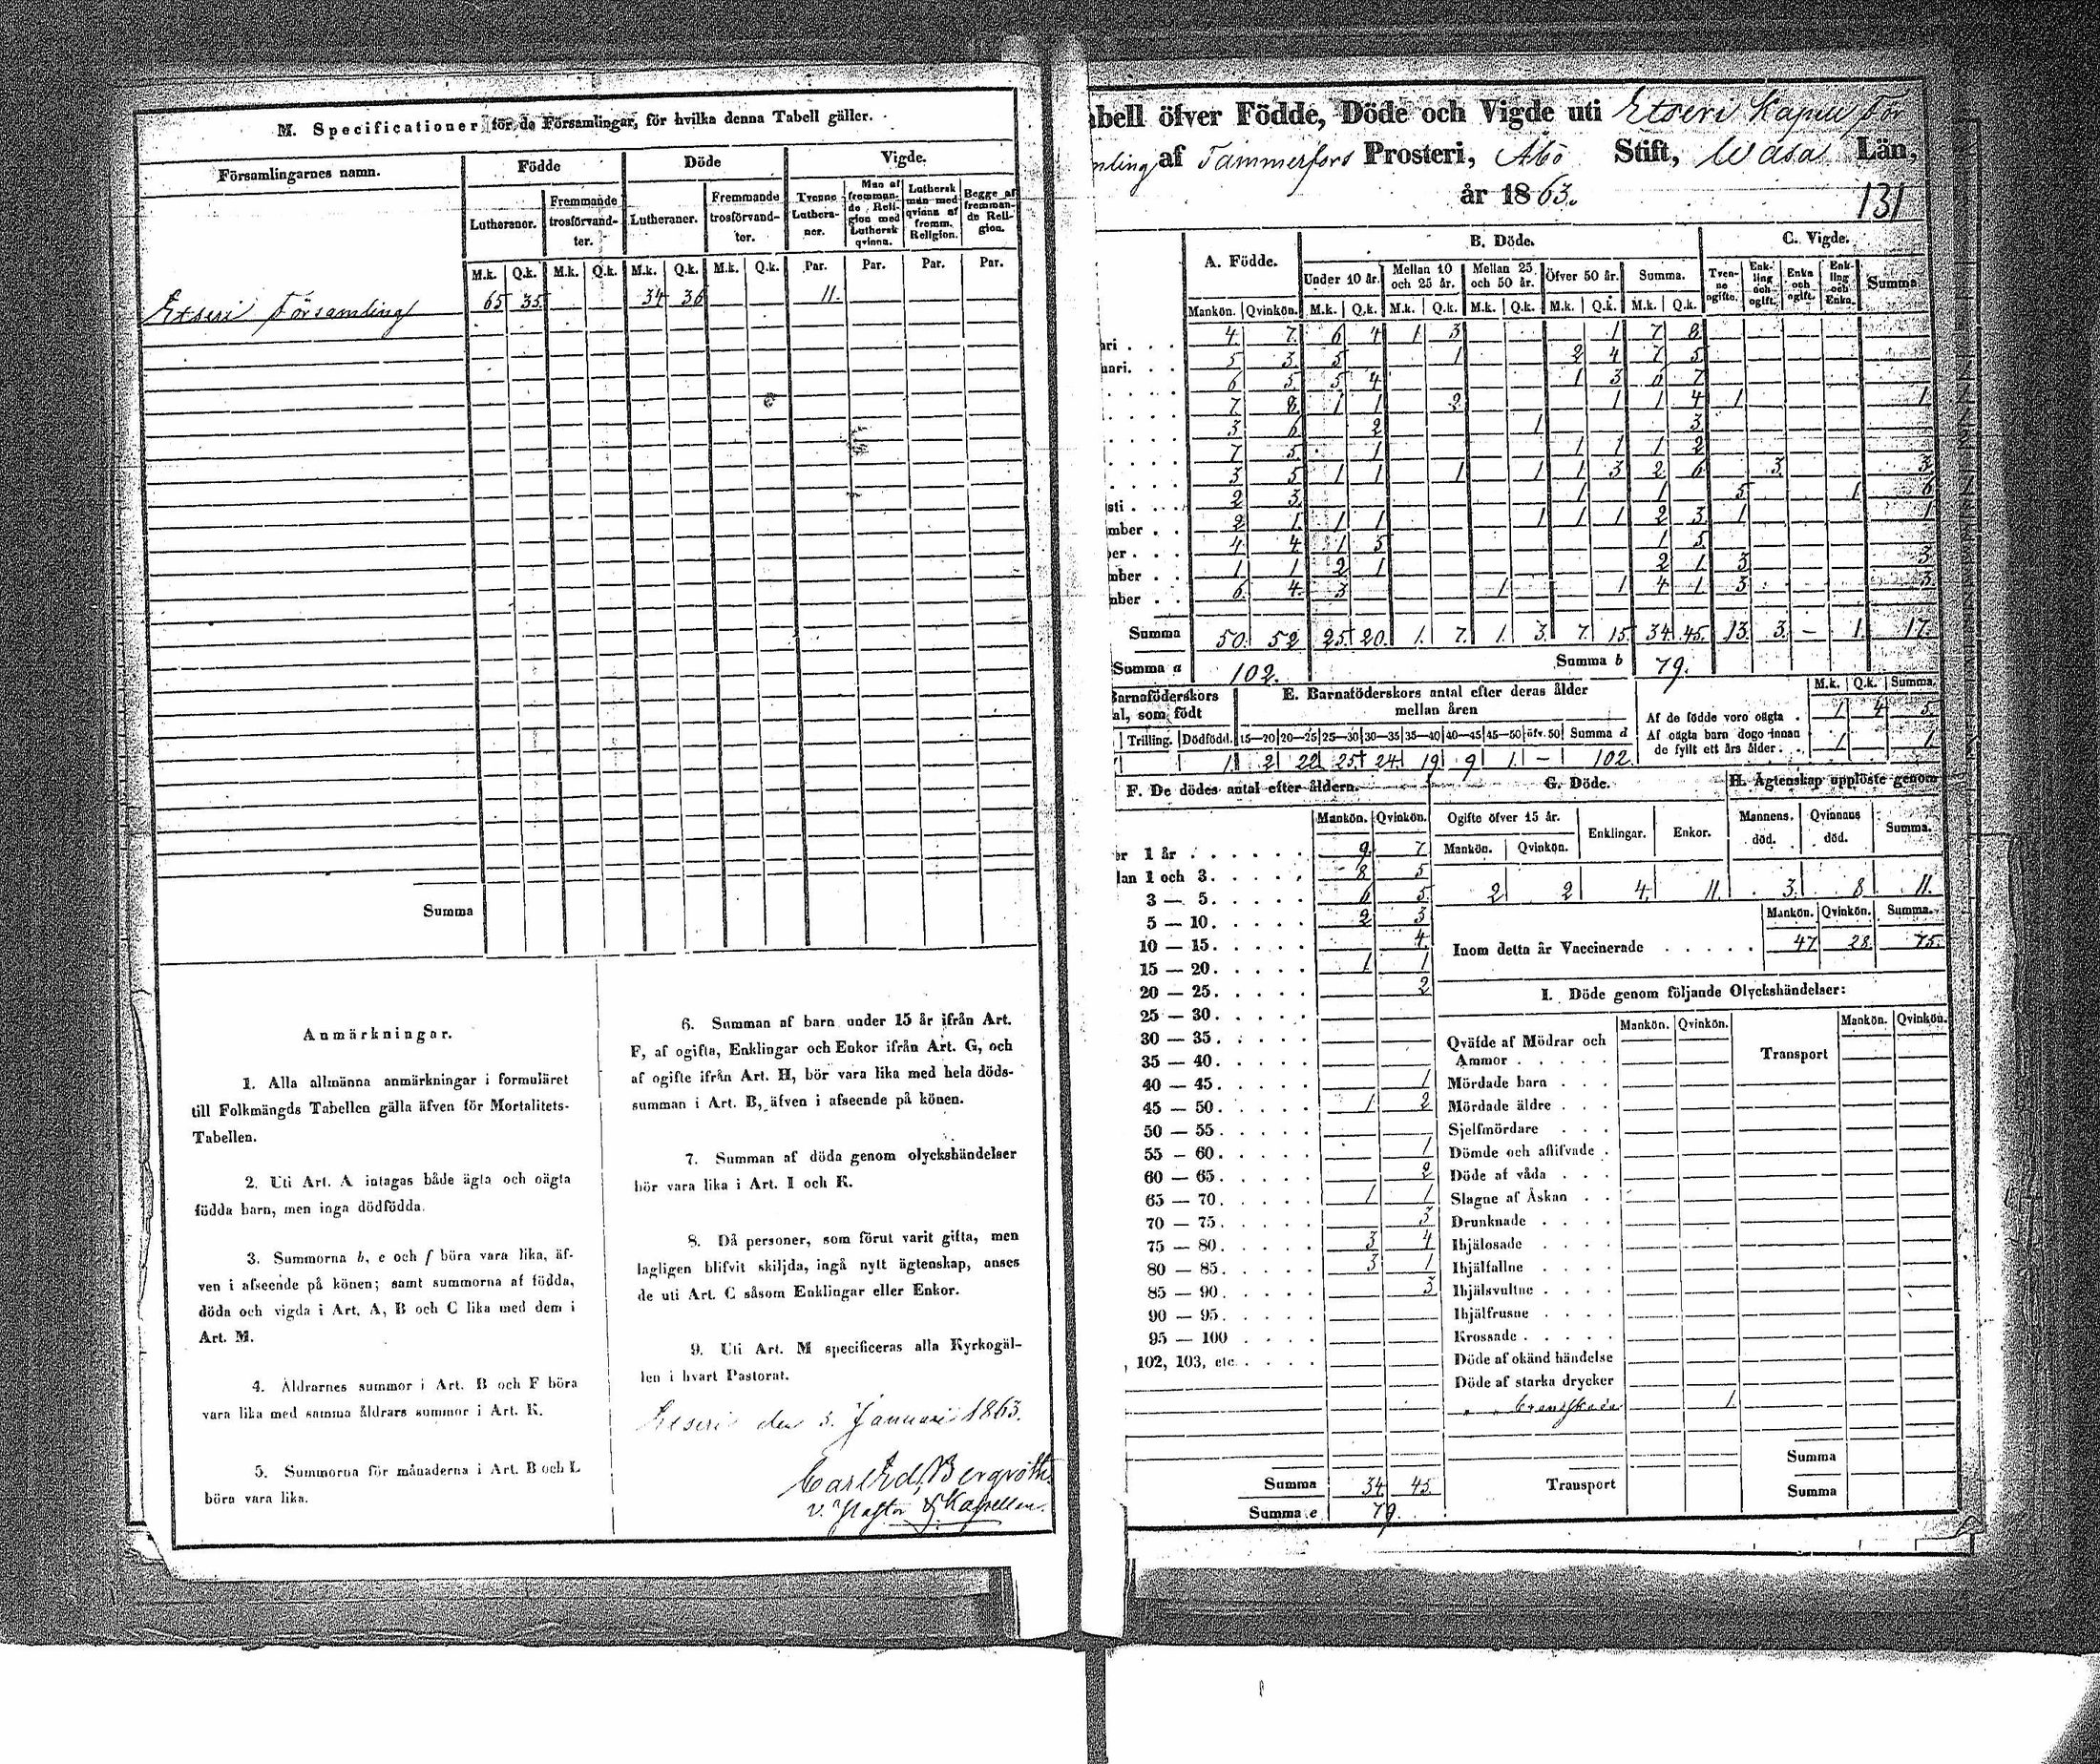 M. Specificationer för de Församlingar, för hvilka denna Tabell gäller.
Församlingarnes namn. Födde Döde Vigde.
Lutheraner. Fremmande trosförvandter. Lutheraner. Fremmande trosförvandter. Tvenne Lutheraner. Man af fremmande Religion med Luthersk qvinna. Luthersk man med qvinna af fremm. Religion. Begge af fremmande Religion.
M.k. Q.k. M.k. Q.k. M.k. Q.k. M.k. Q.k. Par. Par. Par. Par.
Etseri Församling 65 35. 34 36 11.
Summa
Anmärkningar.
1. Alla allmänna anmärkningar i formuläret
till Folkmängds Tabellen gälla äfven för Mortalitets-
Tabellen.
2. Uti Art. A intagas både ägta och oägta
födda barn, men inga dödfödda.
3. Summorna b, e och f böra vara lika, äf-
ven i afseende på könen; samt summorna af födda,
döda och vigda i Art. A, B och C lika med dem i
Art. M.
4. Åldrarnes summor i Art. B och F böra
vara lika med samma åldrars summor i Art. K.
5. Summorna för månaderna i Art. B och L
böra vara lika.
6. Summan af barn under 15 år ifrån Art.
F, af ogifta, Enklingar och Enkor ifrån Art. G, och
af ogifte ifrån Art. H, bör vara lika med hela döds-
summan i Art. B, äfven i afseende på könen.
7. Summan af döda genom olyckshändelser
bör vara lika i Art. I och K.
8. Då personer, som förut varit gifta, men
lagligen blifvit skiljda, ingå nytt ägtenskap, anses
de uti Art. C såsom Enklingar eller Enkor.
9. Uti Art. M specificeras alla Kyrkogäl-
len i hvart Pastorat.
Etseri den 3. Januari 1863.
Carl Ed. Bergroth.
v. Pastor & Kapellan.
bell öfver Födde, Döde och Vigde uti Etseri Kapell För
mling af Tammerfors Prosteri, Åbo Stift, Wasa Län,
år 1863.
131
A. Födde. B. Döde. C. Vigde.
Under 10 år. Mellan 10 och 25 år. Mellan 25 och 50 år. Öfver 50 år. Summa. Tvenne ogifte. Enkling och ogift. Enka och ogift. Enkling och Enka. Summa
Mankön. Qvinkön. M.k. Q.k. M.k. Q.k. M.k. Q.k. M.k. Q.k. M.k. Q.k.
ari . . . 4. 7. 6 4 1 3 1 7 8
uari. . . 5 3. 5 1 2 4 7 5
. . . . 6 5. 5 4 1 3 6 7
. . . . 7. 8. 1 1 2 1 1 4 1 1.
. . . . 3 6. 2 1 3
. . . . 7 5. 1 1 1 1 2
. . . . 3 5 1 1 1 1 1 3 2 6 3 3
sti . . . 2 3. 1 1 5 1 6
mber . . 2 1. 1 1 1 1 1 2 3. 1 1
ber . . . 4 4. 1 5 1 5
mber . . 1 1 2 1 2 1 3 3
mber . . 6. 4. 3 1 1 4 1 3 3
Summa 50. 52 25. 20. 1. 7. 1. 3. 7. 15. 34. 45. 13. 3. – 1. 17.
Summa a 102. Summa b 79.
Barnaföderskors
al, som födt
Trilling. Dödfödd.
1
E. Barnaföderskors antal efter deras ålder
mellan åren
15—20 20—25 25—30 30—35 35—40 40—45 45—50 öfv. 50 Summa d
2 22 25 24 19 9 1. – 102.
M.k. Q.k. Summa.
Af de födde voro oägta . 1 4 5.
Af oägta barn dogo innan
de fyllt ett års ålder . . 1 1.
F. De dödes antal efter åldern.
Mankön. Qvinkön.
er 1 år . . . . . . 9. 7
lan 1 och 3. . . . . 8 5
3 — 5. . . . . 6 5.
5 — 10. . . . . 2 3
10 — 15. . . . . 4.
15 — 20. . . . . 1 1
20 — 25. . . . . 2
25 — 30. . . . .
30 — 35. . . . .
35 — 40. . . . .
40 — 45. . . . . 1
45 — 50. . . . . 1 2
50 — 55. . . . .
55 — 60. . . . . 1
60 — 65. . . . . 2
65 — 70. . . . . 1 1
70 — 75. . . . . 3
75 — 80. . . . . 3 4
80 — 85. . . . . 3 1
85 — 90. . . . . 3
90 — 95. . . . .
95 — 100 . . . .
, 102, 103, etc . . . .
Summa 34. 45.
Summa e 79.
G. Döde.
Ogifte öfver 15 år. Enklingar. Enkor.
Mankön. Qvinkön.
2 2 4. 11.
H. Ägtenskap upplöste genom
Mannens död. Qvinnans död. Summa.
3. 8 11.
Mankön. Qvinkön. Summa.
Inom detta år Vaccinerade . . . . . 47 28. 75.
I. Döde genom följande Olyckshändelser:
Mankön. Qvinkön. Mankön. Qvinkön.
Qväfde af Mödrar och
Ammor . . . . . Transport
Mördade barn . . .
Mördade äldre . . .
Sjelfmördare . . .
Dömde och aflifvade .
Döde af våda . . .
Slagne af Åskan . .
Drunknade . . . .
Ihjälosade . . . .
Ihjälfallne . . . .
Ihjälsvultne . . . .
Ihjälfrusne . . . .
Krossade . . . . .
Döde af okänd händelse
Döde af starka drycker
" " 1
Summa
Transport Summa